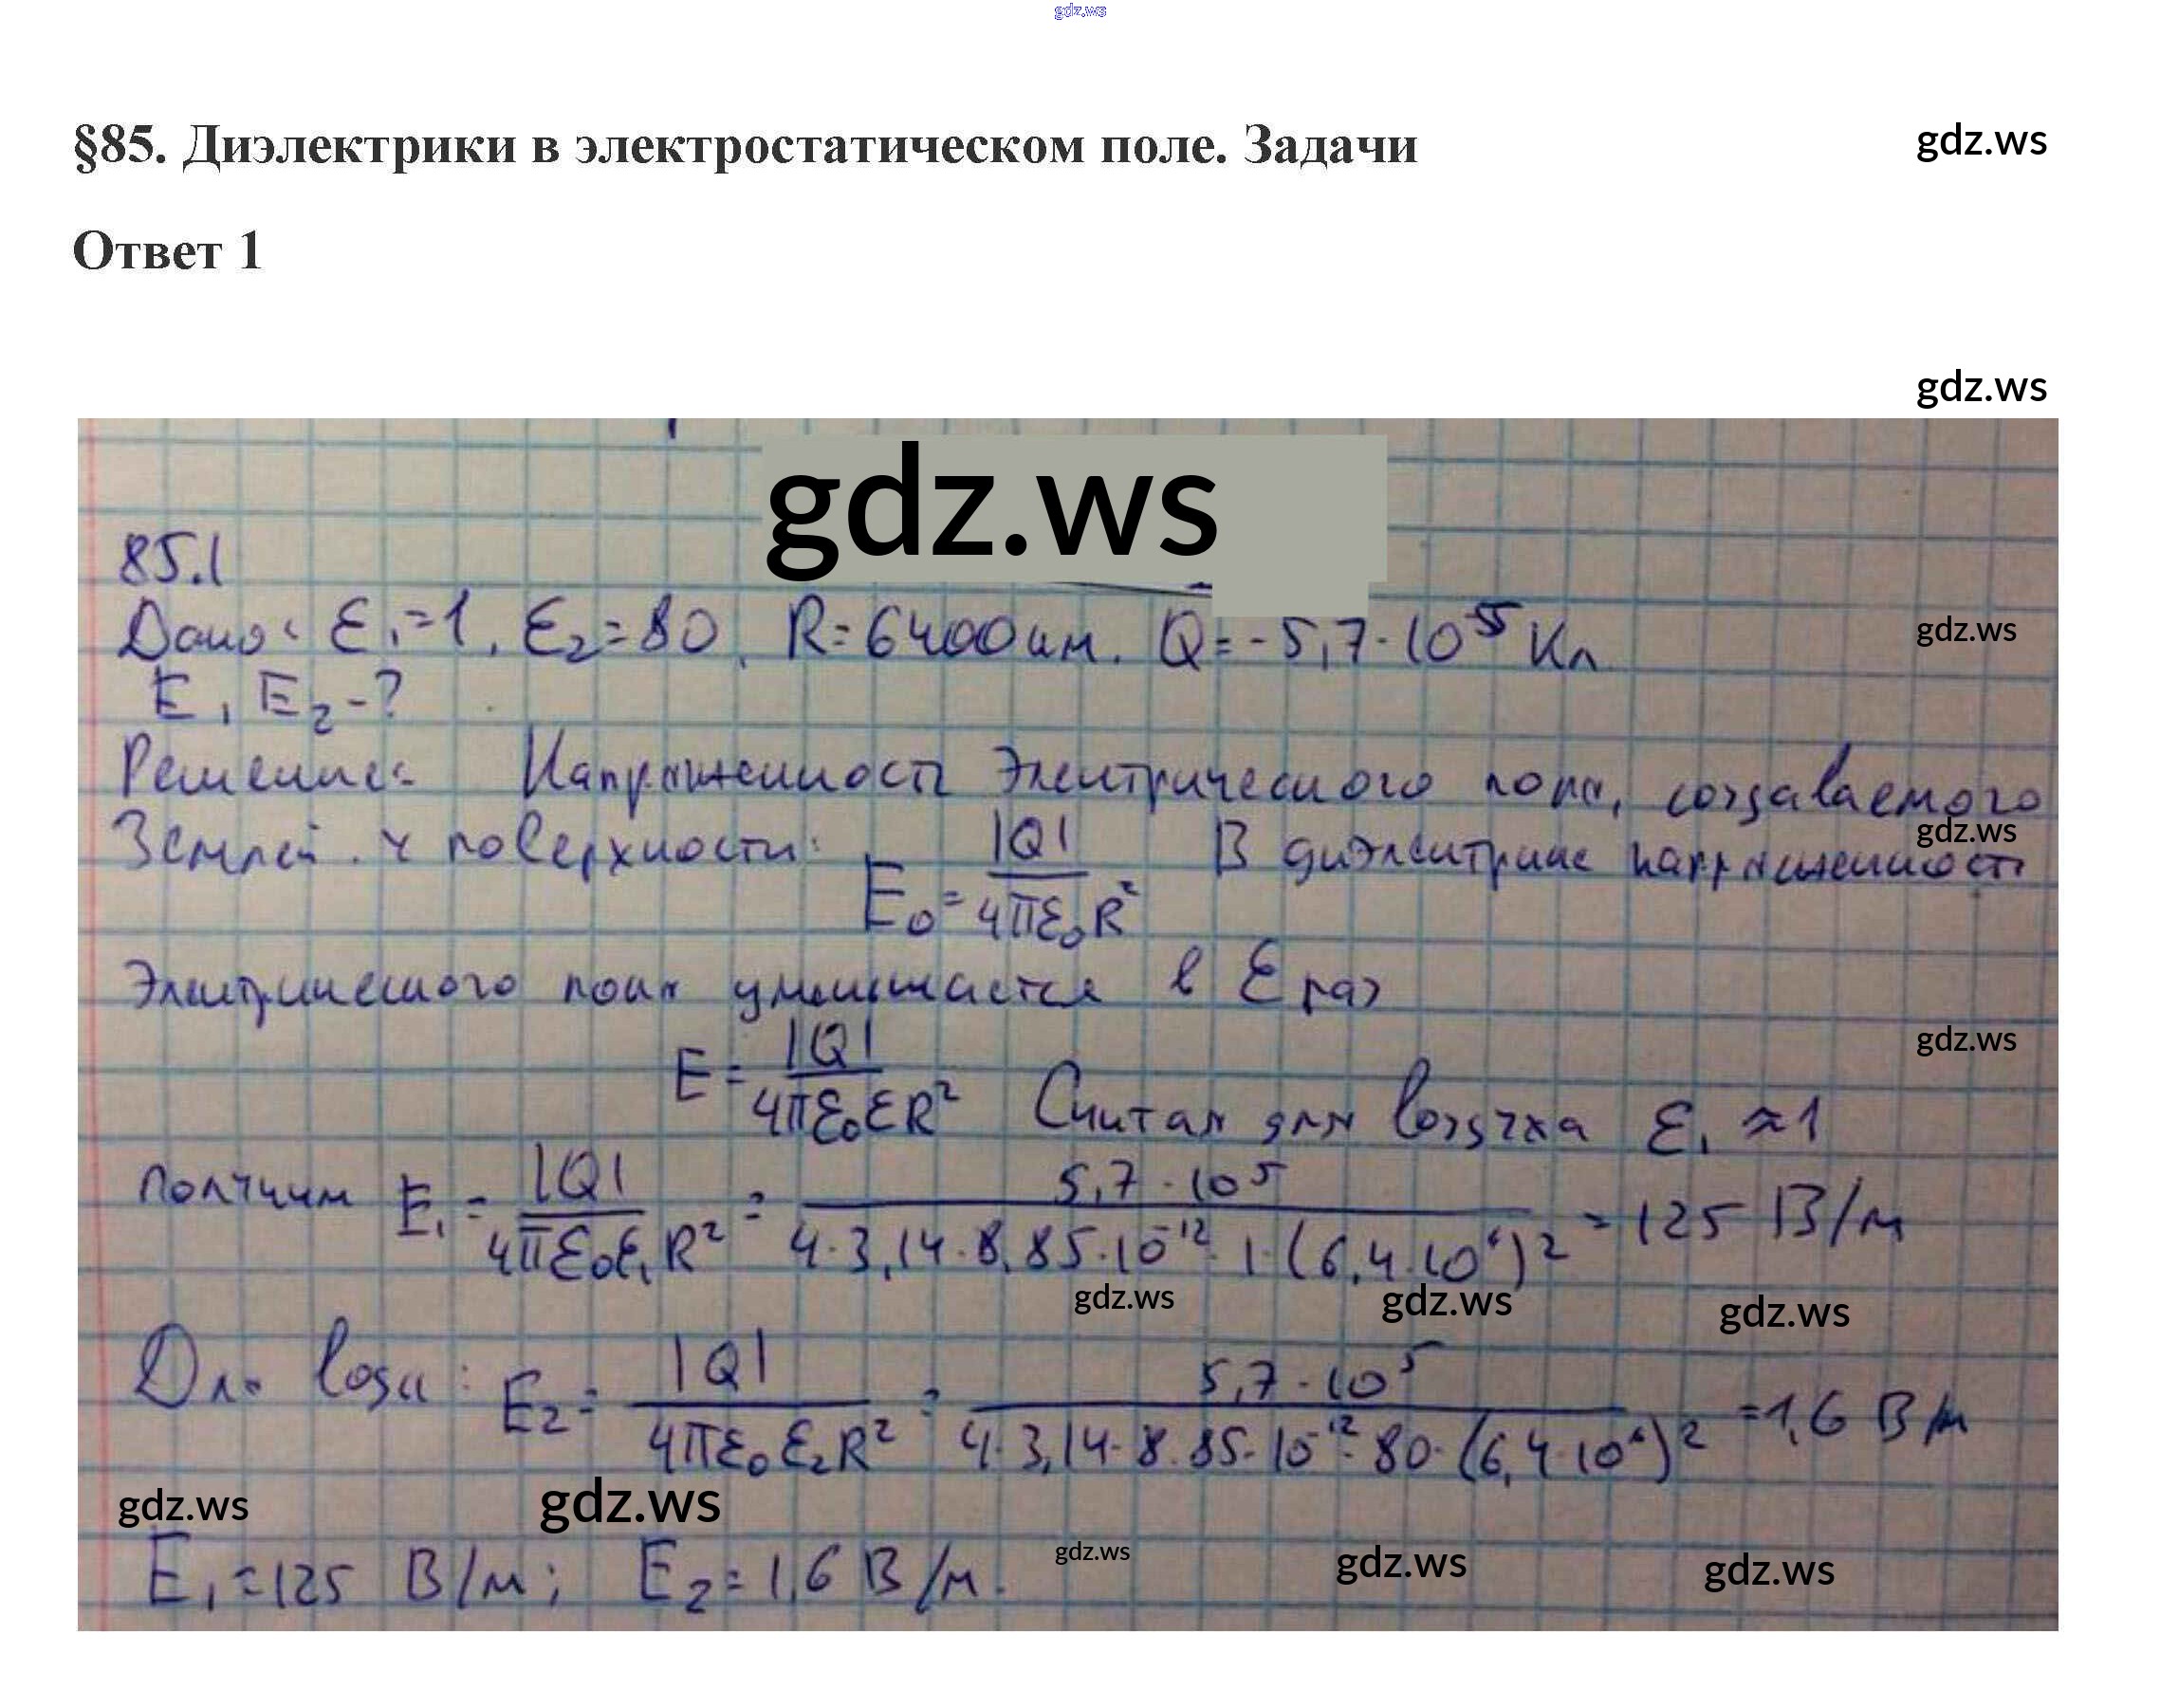 gdz.ws
§85. Диэлектрики в электростатическом поле. Задачи
gdz.ws
Ответ 1
gdz.ws
gdz.ws
85.1
Дано: ε₁=1, ε₂=80, R=6400км. Q=-5,7·10⁵ Кл
gdz.ws
E₁ E₂-?
Решение: Напряженность Электрического поля, создаваемого
gdz.ws
Землей у поверхности: E₀=|Q|/4πε₀R² В диэлектрике напряженность
Электрического поля уменьшается в ε раз
gdz.ws
E=|Q|/4πε₀εR² Считая для воздуха ε₁≈1
получим E₁=|Q|/4πε₀ε₁R²=5,7·10⁵/4·3,14·8,85·10⁻¹²·1·(6,4·10⁶)²=125 В/м
gdz.ws gdz.ws gdz.ws
Для воды: E₂=|Q|/4πε₀ε₂R²=5,7·10⁵/4·3,14·8.85·10⁻¹²·80·(6,4·10⁶)²=1,6 В/м
gdz.ws gdz.ws
E₁=125 В/м; E₂=1,6 В/м.
gdz.ws gdz.ws gdz.ws